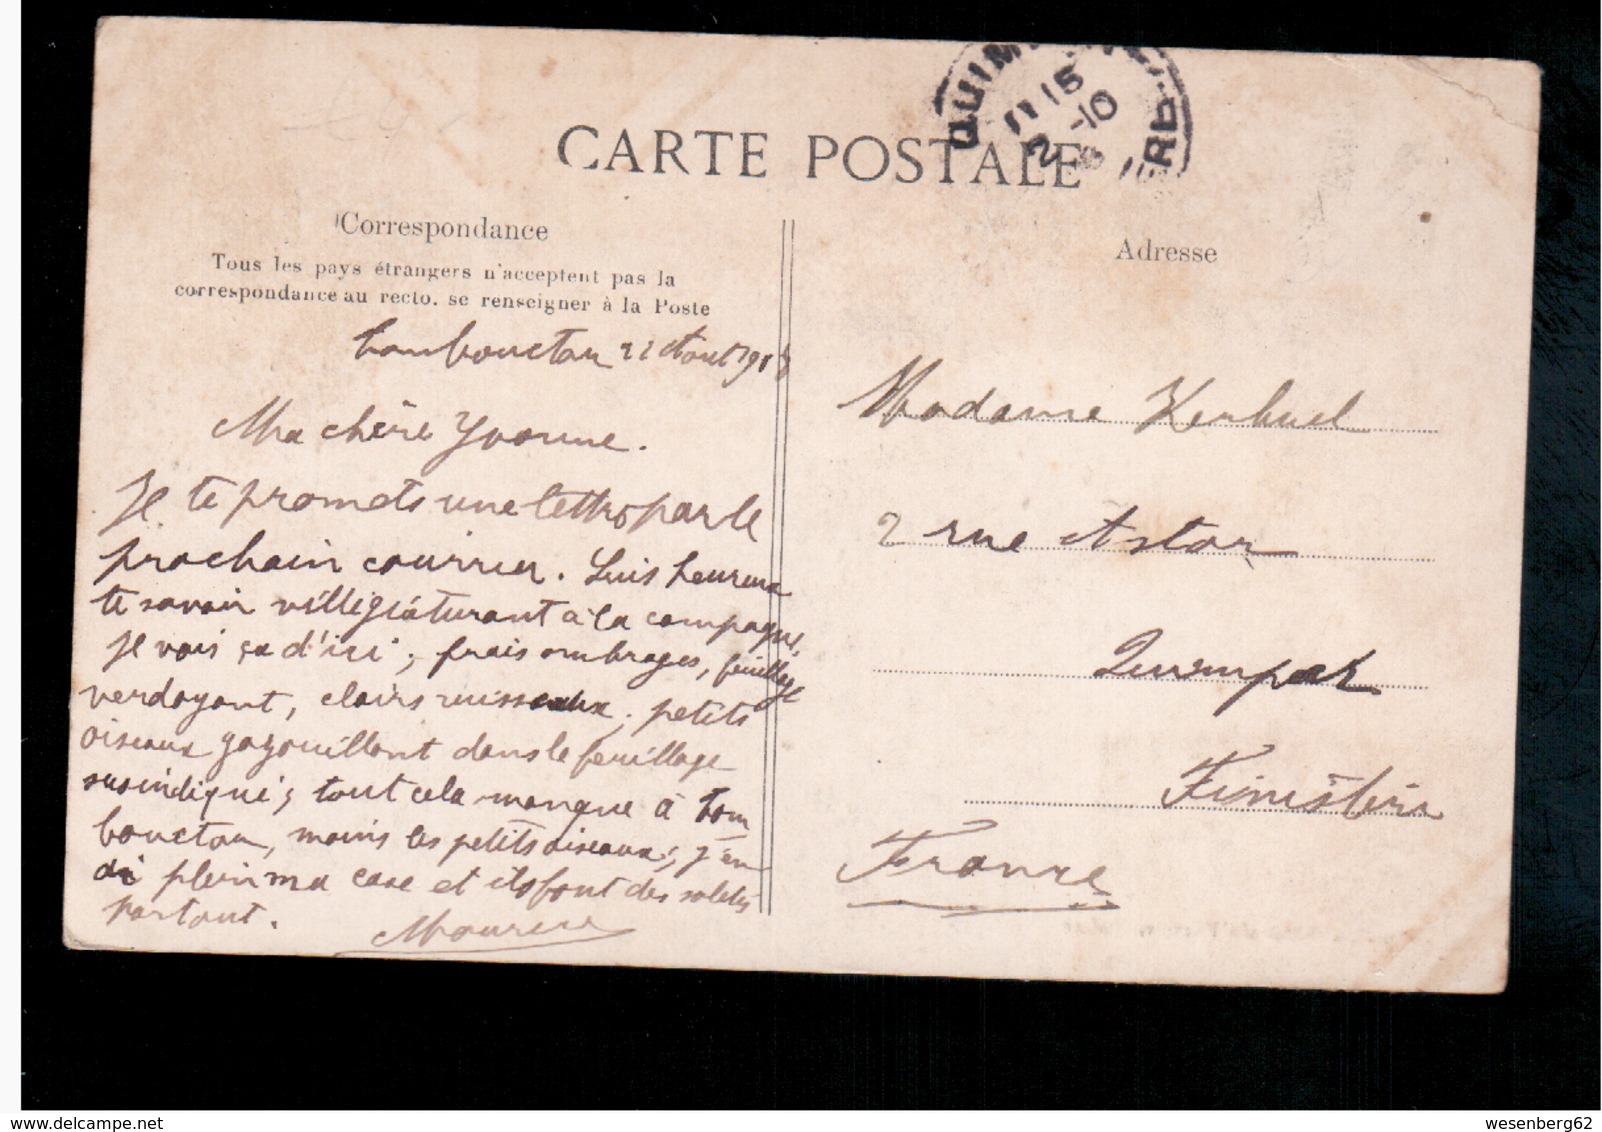 CARTE POSTALE
QUIM
11 15
2 -10
Correspondance
Tous les pays étrangers n'acceptent pas la
correspondance au recto. se renseigner à la Poste
Tombouctou 22 Aout
Ma chère Yvonne.
Je te promets une lettre par le
prochain courrier. Suis heureux
te savoir villégiaturant à la campagne,
Je vois ça d'ici ; frais ombrages, feuillage
verdoyant, clairs ruisseaux ; petits
oiseaux gazouillant dans le feuillage
susindiqué ; tout cela manque à Tom
bouctou, moins les petits oiseaux ; j'en
ai plein ma case et ils font des saletés
partout.
Maurice
Adresse
Madame Kerhuel
2 rue Astor
Quimper
Finistère
France
wesenberg62